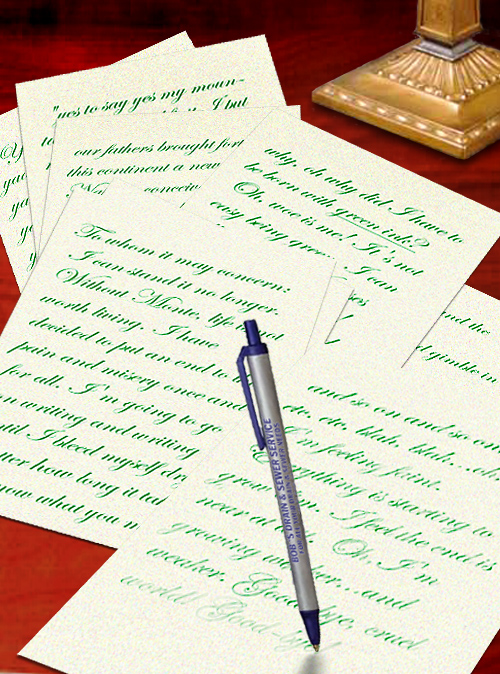 "ues to say yes my moun-
I but
our fathers brought fort
this continent a new
conceiv
why, oh why did I have to
be born with green ink?
Oh, woe is me! It's not
easy being gree
I can
ses
nd the
d gimble in
To whom it may concern:
I can stand it no longer.
Without Monte, life is
worth living. I have
decided to put an end to
pain and misery once and
for all. I'm going to go
on writing and writing
until I bleed myself dr
tter how long it ta
now what you
and so on and so on
etc, etc, blah, blah...
I'm feeling faint.
Everything is starting to
grow dim. I feel the end is
near at Oh, I'm
growing weaker...and
weaker. Good-bye, cruel
world! Good-bye
BOB'S DRAIN & SEWER SERVICE
FOR ALL YOUR DRAIN & SEWER NEEDS